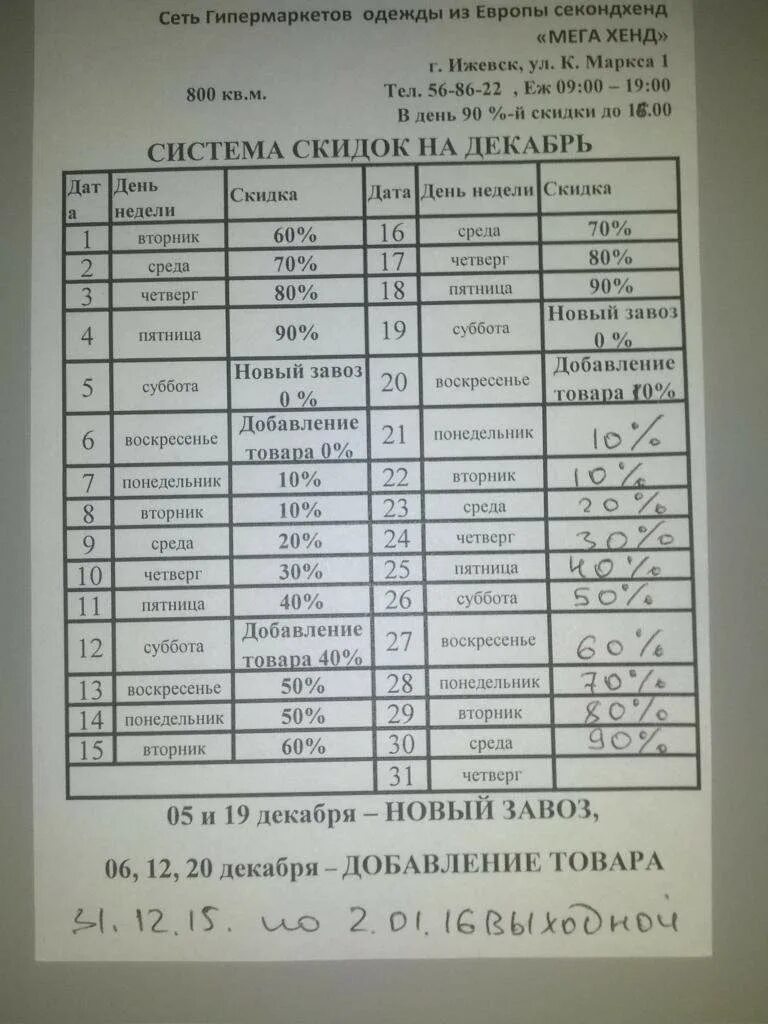 Сеть Гипермаркетов одежды из Европы секондхенд
«МЕГА ХЕНД»
г. Ижевск, ул. К. Маркса 1
800 кв.м. Тел. 56-86-22 , Еж 09:00 – 19:00
В день 90 %-й скидки до 16.00
СИСТЕМА СКИДОК НА ДЕКАБРЬ
Дат День Скидка Дата День недели Скидка
а недели
1 вторник 60% 16 среда 70%
2 среда 70% 17 четверг 80%
3 четверг 80% 18 пятница 90%
4 пятница 90% 19 суббота Новый завоз
0 %
5 суббота Новый завоз 20 воскресенье Добавление
0 % товара 0%
6 воскресенье Добавление 21 понедельник 10%
товара 0%
7 понедельник 10% 22 вторник 10%
8 вторник 10% 23 среда 20%
9 среда 20% 24 четверг 30%
10 четверг 30% 25 пятница 40%
11 пятница 40% 26 суббота 50%
12 суббота Добавление 27 воскресенье 60%
товара 40%
13 воскресенье 50% 28 понедельник 70%
14 понедельник 50% 29 вторник 80%
15 вторник 60% 30 среда 90%
31 четверг
05 и 19 декабря – НОВЫЙ ЗАВОЗ,
06, 12, 20 декабря – ДОБАВЛЕНИЕ ТОВАРА
31.12.15. по 2.01.16 ВЫХОДНОЙ